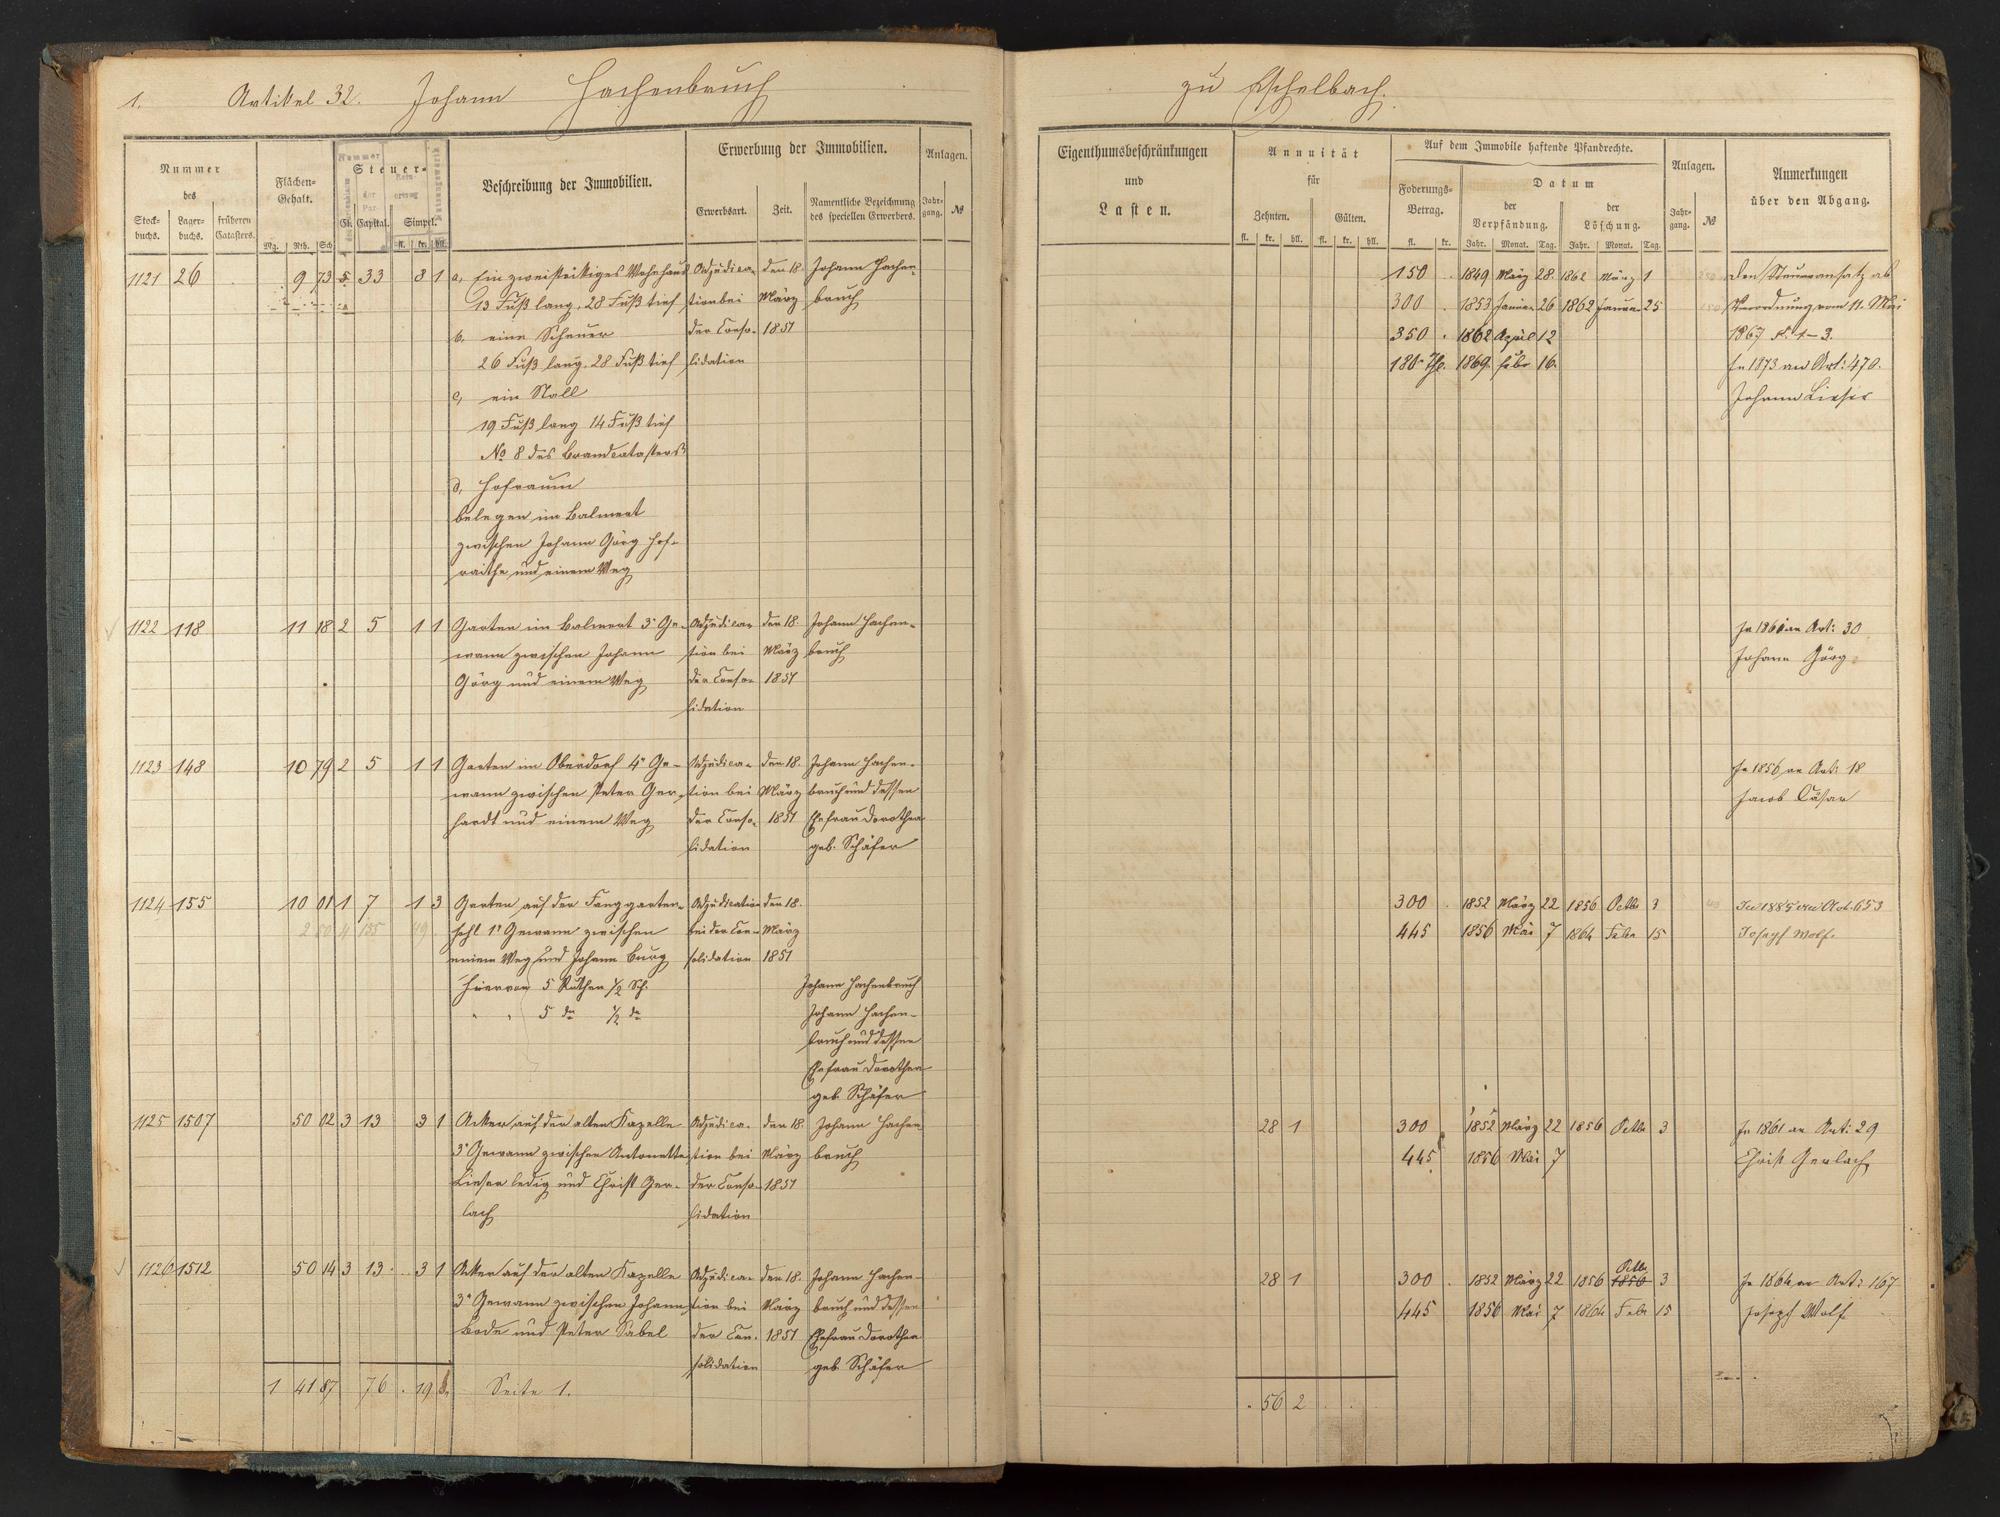 1. Artikel 32. Johann Hachenbruch
zu Eschelbach.
Nummer des
Stockbuchs. Lagerbuchs. früheren Catasters.
Flächen-Gehalt.
Mg. Rth. Sch
Steuer-
Cl. Capital. Simpel.
fl. kr. hll.
Beschreibung der Immobilien.
Erwerbung der Immobilien.
Erwerbsart. Zeit. Namentliche Bezeichnung des speciellen Erwerbers.
Anlagen.
Jahrgang. №
Eigenthumsbeschränkungen
und
Lasten.
Annuität
für
Zehnten. Gülten.
fl. kr. hll. fl. kr. hll.
Auf dem Immobile haftende Pfandrechte.
Foderungs-Betrag.
fl. kr.
Datum
der Verpfändung. der Löschung.
Jahr. Monat. Tag. Jahr. Monat. Tag.
Anlagen.
Jahrgang. №
Anmerkungen
über den Abgang.
1121 26 9 73 5 33 8 1 a, Ein zweistöckiges Wohnhaus Adjudica- den 18. Johann Hachen-
13 Fuß lang, 28 Fuß tief tion bei März bruch
b, eine Scheuer der Conso- 1851
26 Fuß lang, 28 Fuß tief lidation
c, ein Stall
19 Fuß lang 14 Fuß tief
No 8 des Brandcatasters
d, Hofraum
belegen im Balmert
zwischen Johann Görg Hof-
raithe und einem Weg
150 1849 März 28. 1862 März 1 Den Steueransatz ab
300 1853 Januar 26 1862 Januar 25 Verordnung vom 11. Mai
350 1862 April 12 1867 §. 1-3.
180 Thl. 1869 Febr 16. In 1873 an Art: 470.
Johann Lieser
1122 118 11 18 2 5 1 1 Garten im Balmert 3r Ge- Adjudica- den 18. Johann Hachen-
wann zwischen Johann tion bei März bruch
Görg und einem Weg der Conso- 1851
lidation
In 1860 an Art: 30
Johann Görg
1123 148 10 79 2 5 1 1 Garten im Oberdorf 4r Ge- Adjudica- den 18. Johann Hachen-
wann zwischen Peter Ger- tion bei März bruch und dessen
hardt und einem Weg der Conso- 1851 Ehefrau Dorothea
lidation geb. Schäfer
In 1856 an Art: 18
Jacob Cäsar
1124 155 10 01 1 7 1 3 Garten auf der Fanggarten- Adjudication den 18.
2 50 4 135 49 hohl 1r Gewann zwischen bei der Con- März
einem Weg und Johann Burg solidation 1851
Hiervon 5 Ruthen ½ Sch. Johann Hachenbruch
" " 5 do ½ do Johann Hachen-
bruch und dessen
Ehefrau Dorothea
geb. Schäfer
300 1852 März 22 1856 Octbr 3 In 1885 an Art. 653
445 1856 Mai 7 1864 Febr 15 Joseph Wolf.
1125 1507 50 02 3 13 3 1 Acker auf der alten Kapelle Adjudica- den 18. Johann Hachen-
3r Gewann zwischen Antonette tion bei März bruch
Lieser ledig und Christ Ger- der Conso- 1851
lach lidation
28 1 300 1852 März 22 1856 Octbr 3 In 1861 an Art: 29
445 1856 Mai 7 Christ Gerlach
1126 1512 50 14 3 13 3 1 Acker auf der alten Kapelle Adjudica- den 18. Johann Hachen-
3r Gewann zwischen Johann tion bei März bruch und dessen
Bode und Peter Sabel der Con- 1851 Ehefrau Dorothea
solidation geb. Schäfer
28 1 300 1852 März 22 1856 Octbr 1856 3 In 1864 an Art: 167
445 1856 Mai 7 1864 Febr 15 Joseph Wolf
1 41 87 76 19 Seite 1.
56 2